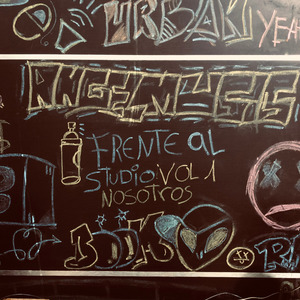 URBAN
YEA
ANGELMUSS
FRENTE al
STUDIO: VOL 1
NOSOTROS
BOOK